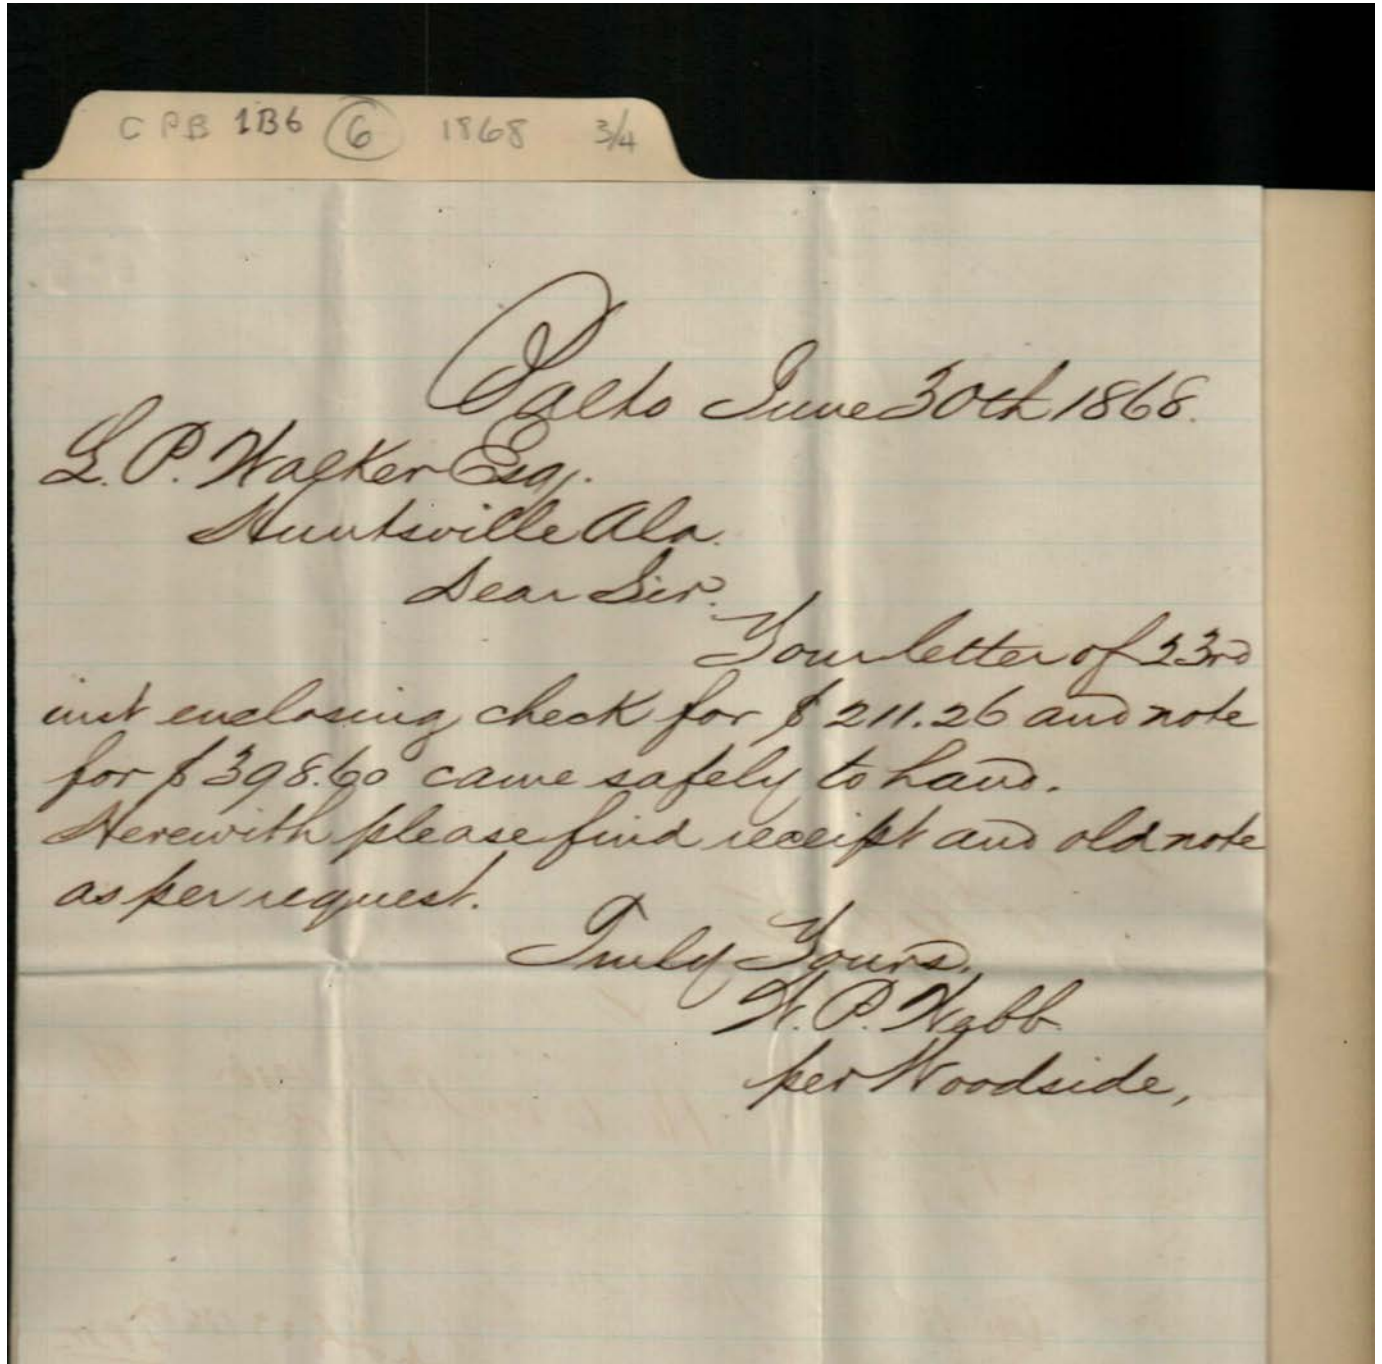 CPB 1B6 6 1868 3/4
Balto June 30th 1868.
L. P. Walker Esq.
Huntsville Ala.
Dear Sir.
Your letter of 23rd
inst enclosing check for $211.26 and note
for $398.60 came safely to hand.
Herewith please find receipt and old note
as per request.
Truly Yours,
W. P. Webb
per Woodside,